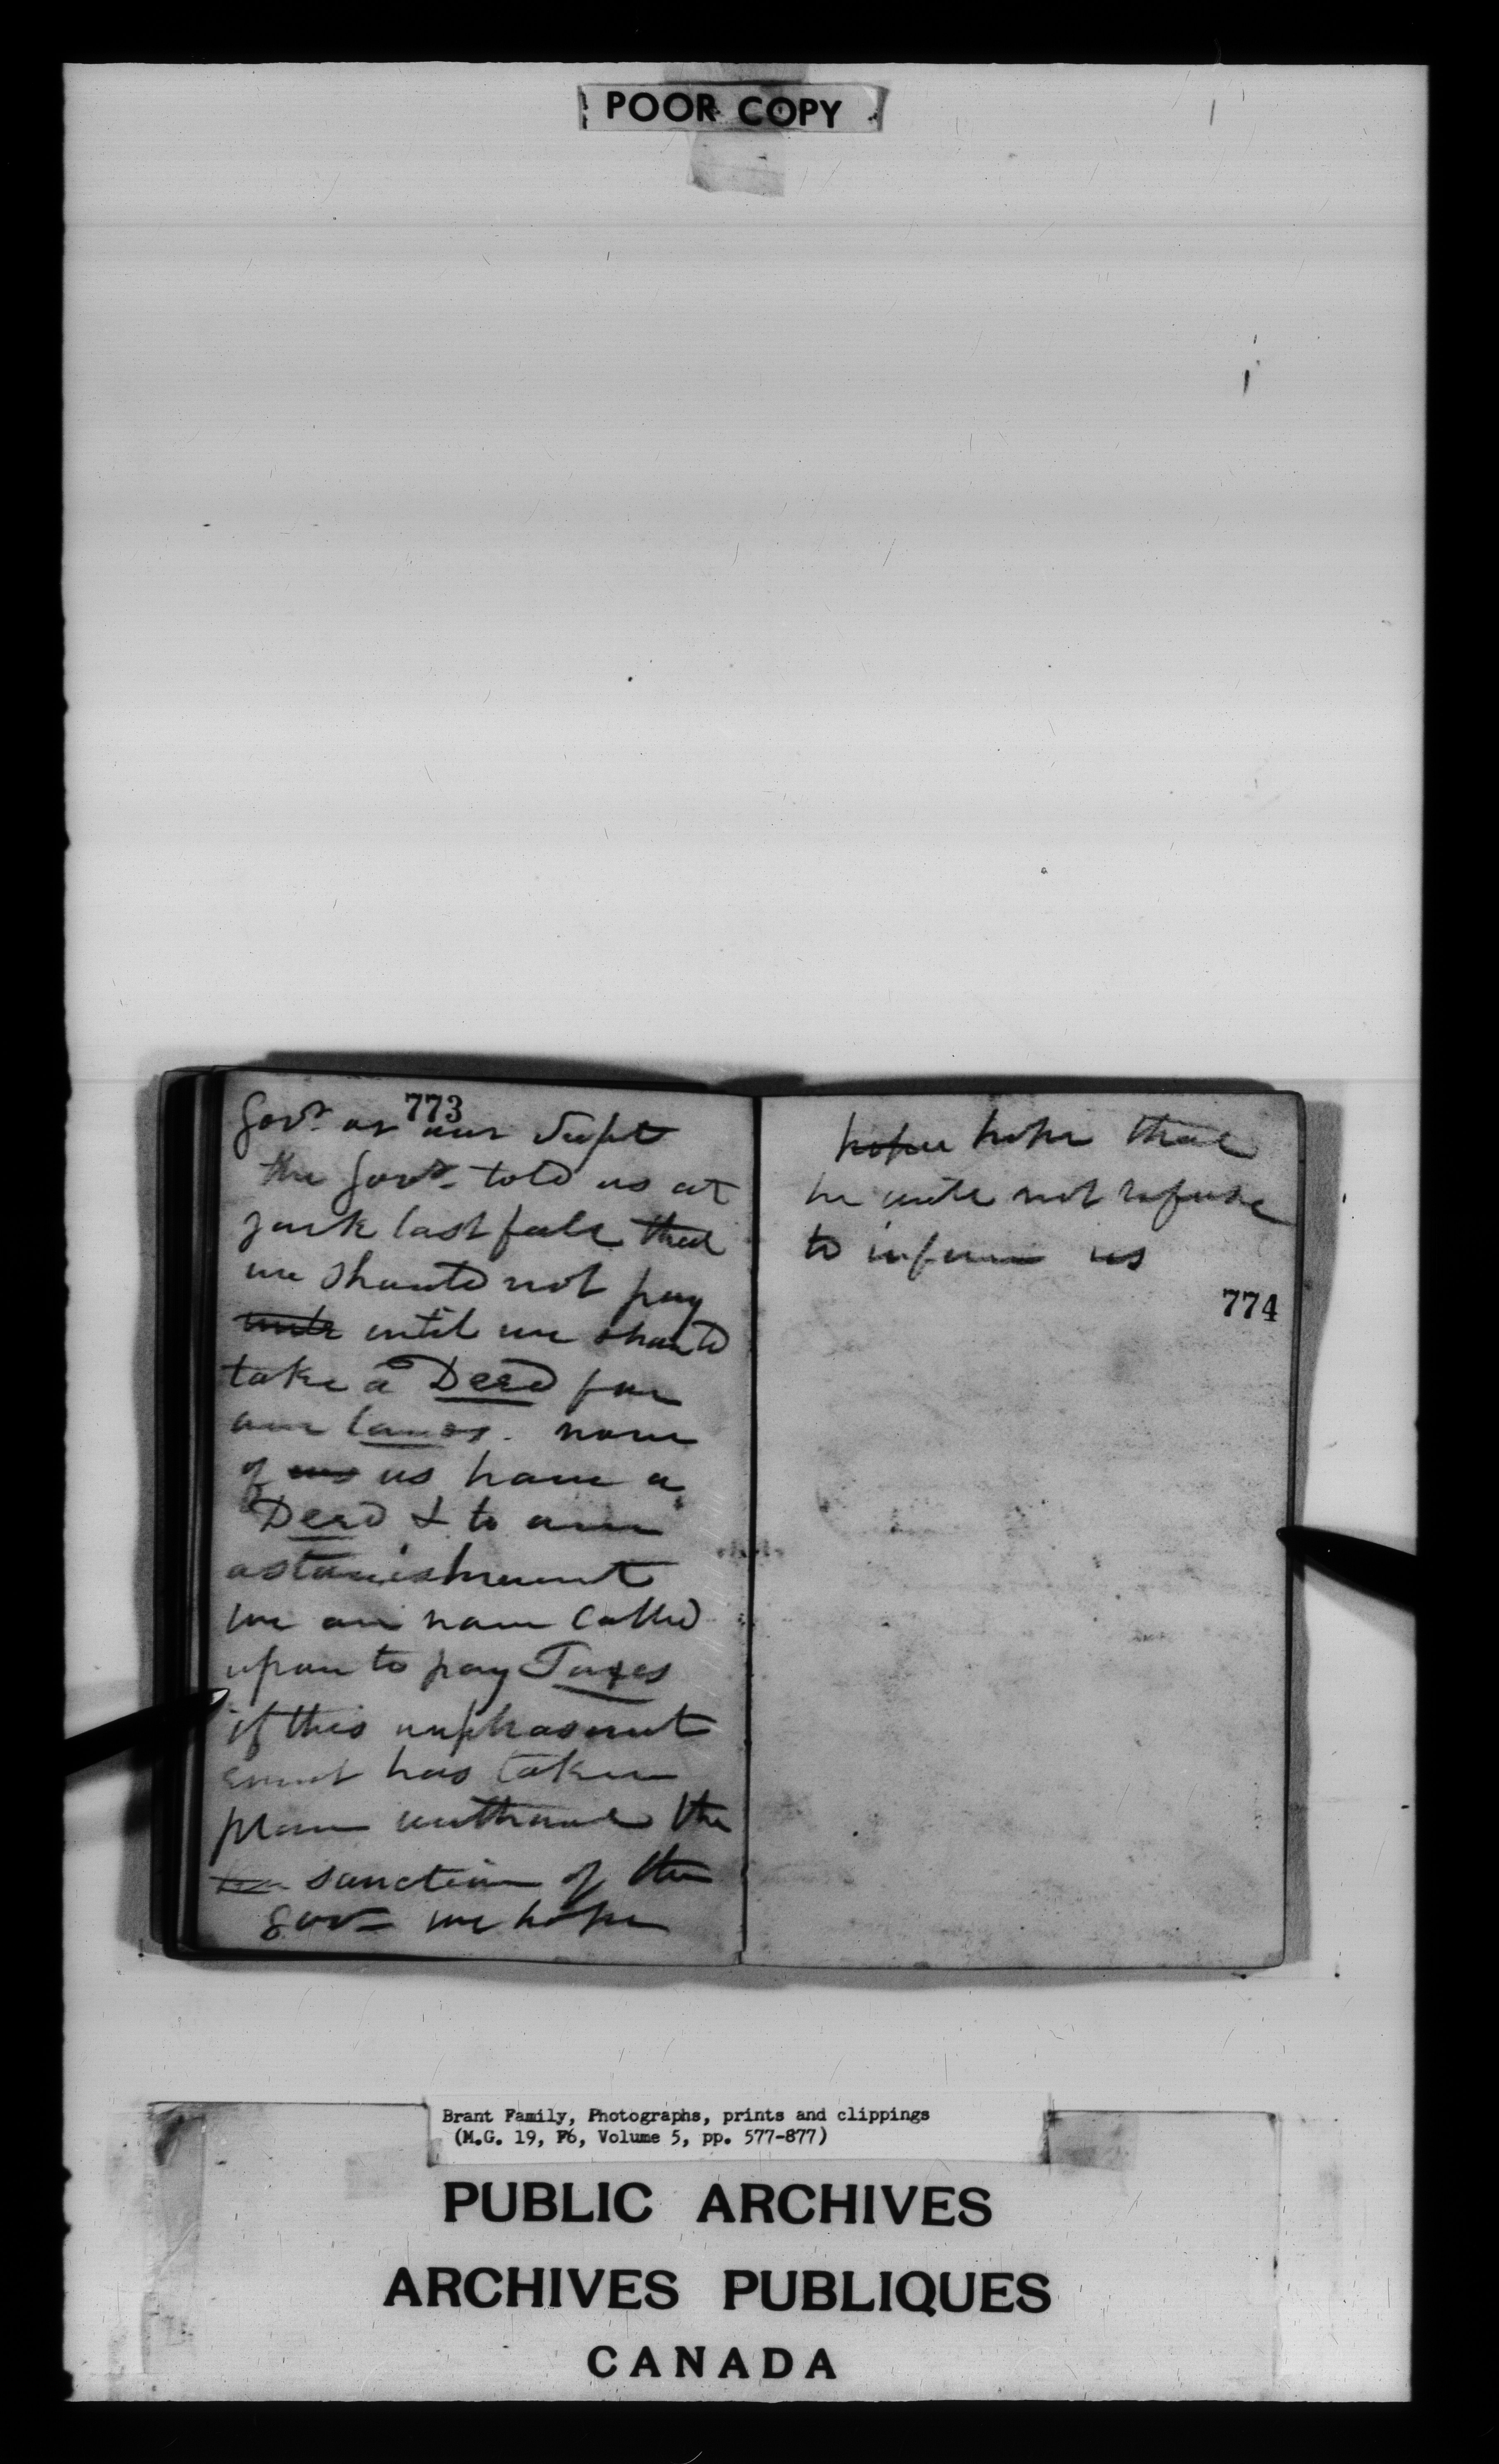 POOR COPY
773
Govr or our Supt
the Govr told us at
york last fall that
we should not pay
until we should
take a Deed for
our lands. none
of us have a
Deed & to our
astonishment
we are now called
upon to pay Taxes
if this unpleasant
event has taken
place without the
sanction of the
govr we hope
hope hope that
he will not refuse
to inform us
774
Brant Family, Photographs, prints and clippings
(M.G. 19, F6, Volume 5, pp. 577-877)
PUBLIC ARCHIVES
ARCHIVES PUBLIQUES
CANADA